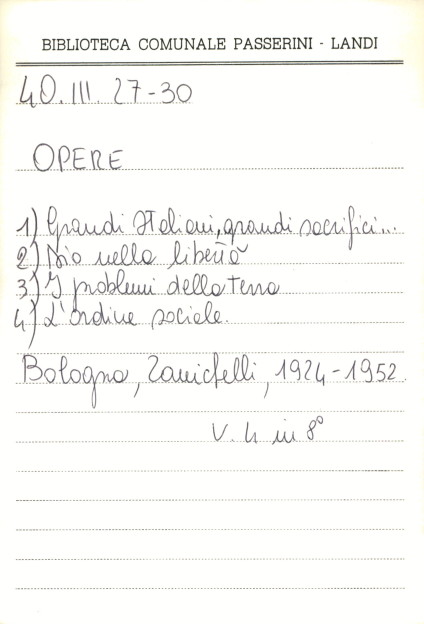 BIBLIOTECA COMUNALE PASSERINI - LANDI
40.III. 27-30
OPERE
1) Grandi Italiani, grandi sacrifici...
2) Dio nella libertà
3) I problemi della terra
4) L'ordine sociale.
Bologna, Zanichelli, 1924-1952.
V. 4 in 8°